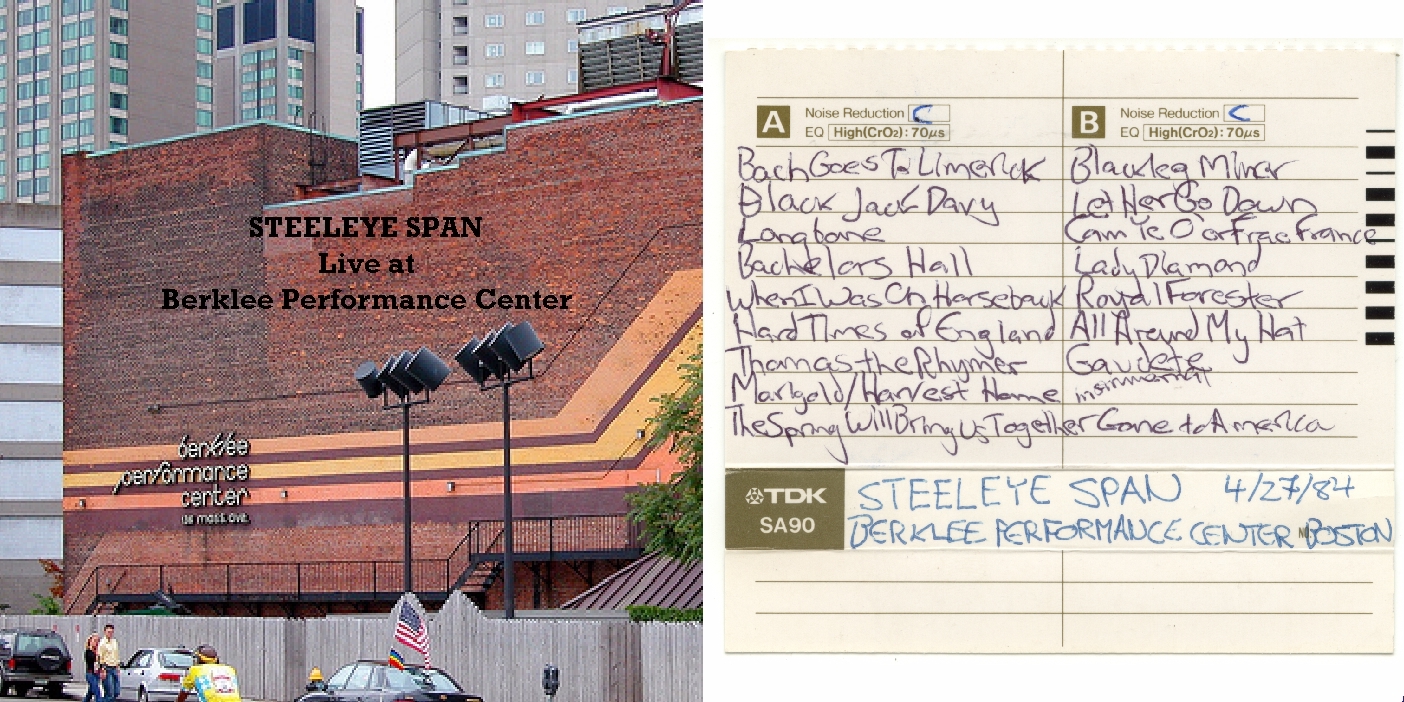 STEELEYE SPAN
Live at
Berklee Performance Center
berklee
performance
center
136 mass. ave.
A Noise Reduction C
EQ High(CrO2): 70µs
Bach Goes To Limerick
Black Jack Davy
Longbone
Bachelors Hall
When I Was On Horseback
Hard Times of England
Thomas the Rhymer
Marigold/Harvest Home
The Spring Will Bring Us Together
B Noise Reduction C
EQ High(CrO2): 70µs
Blackleg Miner
Let Her Go Down
Cam Ye O'er Frae France
Lady Diamond
Royal Forester
All Around My Hat
Gaudete
instrumental
Gone to America
TDK
SA90
STEELEYE SPAN 4/27/84
BERKLEE PERFORMANCE CENTER BOSTON